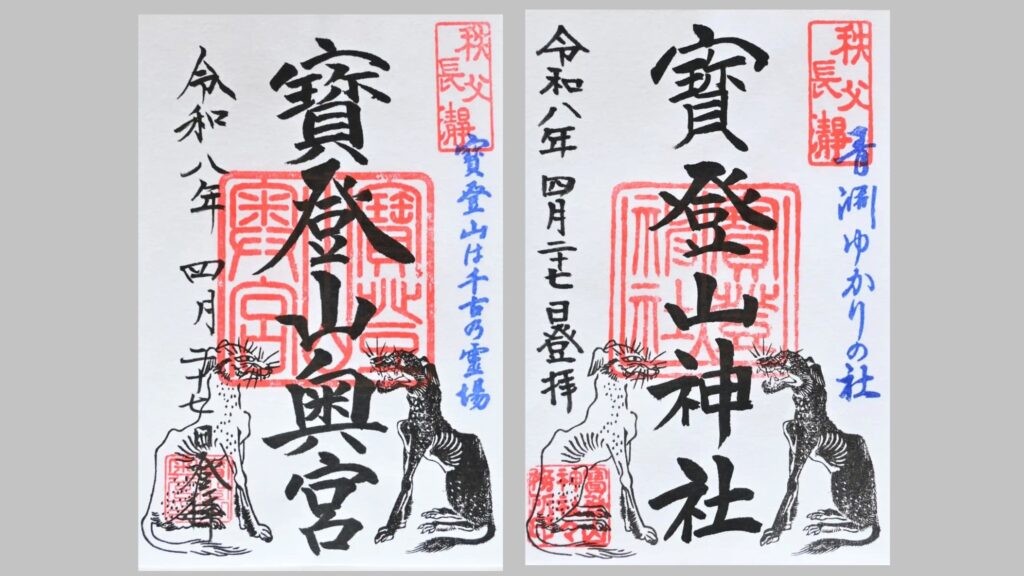 秩父
長瀞
寶登山は千古乃霊場
寶登山奥宮
令和八年 四月二十七日登拝
秩父
長瀞
青淵ゆかりの社
寶登山神社
令和八年 四月二十七日登拝